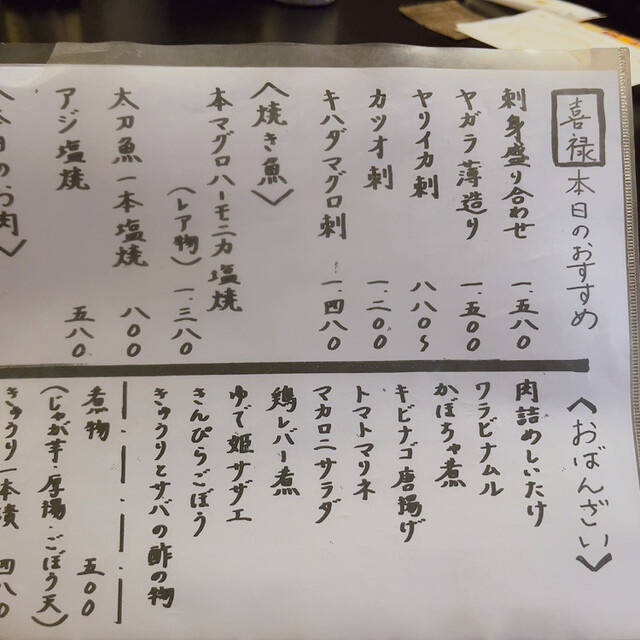 喜禄 本日のおすすめ
刺身盛り合わせ 一.五八〇
ヤガラ薄造り 一.五〇〇
ヤリイカ刺 八八〇〜
カツオ刺 一.二〇〇
キハダマグロ刺 一.四八〇
〈焼き魚〉
本マグロハーモニカ塩焼
(レア物) 一.三八〇
太刀魚一本塩焼 八〇〇
アジ塩焼 五八〇
〈本日のお肉〉
〈おばんざい〉
肉詰めしいたけ
ワラビナムル
かぼちゃ煮
キビナゴ唐揚げ
トマトマリネ
マカロニサラダ
鶏レバー煮
ゆで姫サザエ
きんぴらごぼう
きゅうりとサバの酢の物
煮物 五〇〇
(じゃが芋・厚揚・ごぼう天)
きゅうり一本漬 四八〇